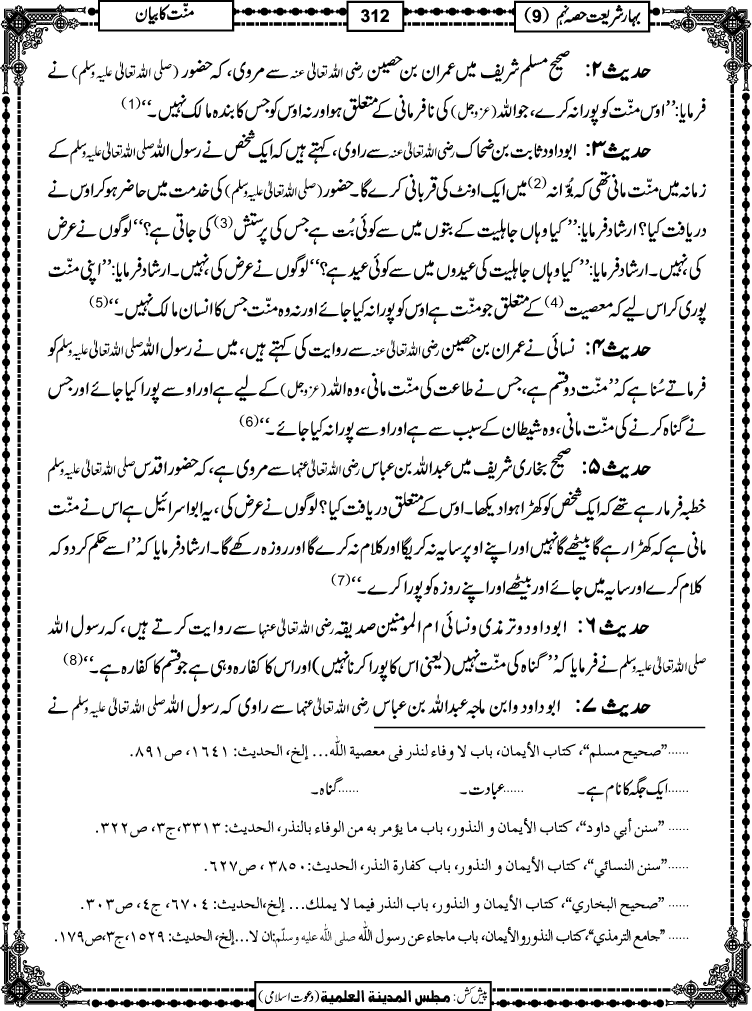 بہار شریعت حصہ نہم (9)
312
منّت کا بیان
حدیث ۲: صحیح مسلم شریف میں عمران بن حصین رضی اللہ تعالیٰ عنہ سے مروی، کہ حضور (صلی اللہ تعالیٰ علیہ وسلم) نے
فرمایا: ’’اوس منّت کو پورا نہ کرے، جو اللہ (عزوجل) کی نافرمانی کے متعلق ہو اور نہ اوس کو جس کا بندہ مالک نہیں۔‘‘ (1)
حدیث ۳: ابوداود ثابت بن ضحاک رضی اللہ تعالیٰ عنہ سے راوی، کہتے ہیں کہ ایک شخص نے رسول اللہ صلی اللہ تعالیٰ علیہ وسلم کے
زمانہ میں منّت مانی تھی کہ بُوَّانہ (2) میں ایک اونٹ کی قربانی کرے گا۔ حضور (صلی اللہ تعالیٰ علیہ وسلم) کی خدمت میں حاضر ہو کر اوس نے
دریافت کیا؟ ارشاد فرمایا: ’’کیا وہاں جاہلیت کے بتوں میں سے کوئی بُت ہے جس کی پرستش (3) کی جاتی ہے؟‘‘ لوگوں نے عرض
کی نہیں۔ ارشاد فرمایا: ’’کیا وہاں جاہلیت کی عیدوں میں سے کوئی عید ہے؟‘‘ لوگوں نے عرض کی نہیں۔ ارشاد فرمایا: ’’اپنی منّت
پوری کر اس لیے کہ معصیت (4) کے متعلق جو منّت ہے اوس کو پورا نہ کیا جائے اور نہ وہ منّت جس کا انسان مالک نہیں۔‘‘ (5)
حدیث ۴: نسائی نے عمران بن حصین رضی اللہ تعالیٰ عنہ سے روایت کی کہتے ہیں، میں نے رسول اللہ صلی اللہ تعالیٰ علیہ وسلم کو
فرماتے سُنا ہے کہ ’’منّت دو قسم ہے، جس نے طاعت کی منّت مانی، وہ اللہ (عزوجل) کے لیے ہے اور اوسے پورا کیا جائے اور جس
نے گناہ کرنے کی منّت مانی، وہ شیطان کے سبب سے ہے اور اوسے پورا نہ کیا جائے۔‘‘ (6)
حدیث ۵: صحیح بخاری شریف میں عبداللہ بن عباس رضی اللہ تعالیٰ عنہما سے مروی ہے، کہ حضور اقدس صلی اللہ تعالیٰ علیہ وسلم
خطبہ فرما رہے تھے کہ ایک شخص کو کھڑا ہوا دیکھا۔ اوس کے متعلق دریافت کیا؟ لوگوں نے عرض کی، یہ ابو اسرائیل ہے اس نے منّت
مانی ہے کہ کھڑا رہے گا بیٹھے گا نہیں اور اپنے اوپر سایہ نہ کریگا اور کلام نہ کرے گا اور روزہ رکھے گا۔ ارشاد فرمایا کہ ’’اسے حکم کر دو کہ
کلام کرے اور سایہ میں جائے اور بیٹھے اور اپنے روزہ کو پورا کرے۔‘‘ (7)
حدیث ۶: ابوداود و ترمذی و نسائی ام المومنین صدیقہ رضی اللہ تعالیٰ عنہا سے روایت کرتے ہیں، کہ رسول اللہ
صلی اللہ تعالیٰ علیہ وسلم نے فرمایا کہ ’’گناہ کی منّت نہیں (یعنی اس کا پورا کرنا نہیں) اور اس کا کفارہ وہی ہے جو قسم کا کفارہ ہے۔‘‘ (8)
حدیث ۷: ابوداود و ابن ماجہ عبداللہ بن عباس رضی اللہ تعالیٰ عنہما سے راوی کہ رسول اللہ صلی اللہ تعالیٰ علیہ وسلم نے
......’’صحيح مسلم‘‘، كتاب الأيمان، باب لا وفاء لنذر فى معصية الله... إلخ، الحديث: ١٦٤١، ص٨٩١.
......ایک جگہ کا نام ہے۔ ......عبادت۔ ......گناہ۔
......’’سنن أبي داود‘‘، كتاب الأيمان و النذور، باب ما يؤمر به من الوفاء بالنذر، الحديث: ٣٣١٣، ج٣، ص٣٢٢.
......’’سنن النسائي‘‘، كتاب الأيمان و النذور، باب كفارة النذر، الحديث: ٣٨٥٠، ص٦٢٧.
......’’صحيح البخاري‘‘، كتاب الأيمان و النذور، باب النذر فيما لا يملك... إلخ، الحديث: ٦٧٠٤، ج٤، ص٣٠٣.
......’’جامع الترمذي‘‘، كتاب النذور والأيمان، باب ماجاء عن رسول الله صلى الله عليه وسلم: ان لا...إلخ، الحديث: ١٥٢٩، ج٣، ص١٧٩.
پیش کش: مجلس المدينة العلمية (دعوت اسلامی)